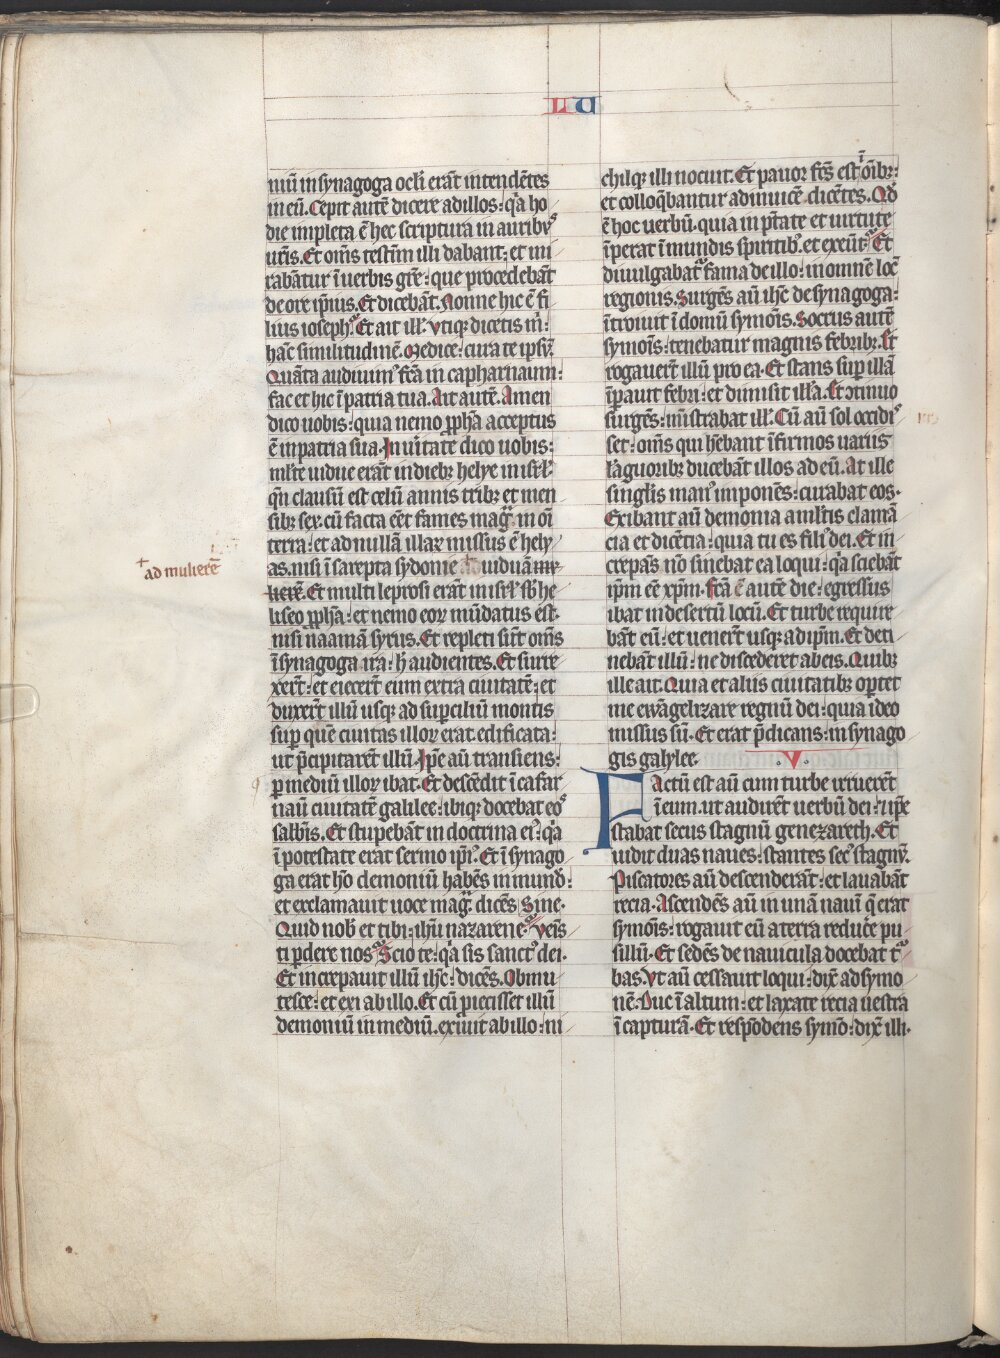 LU
niū in synagoga ocľi erāt intendētes
in eū. Cepit autē dicere ad illos: qͥa ho
die impleta ē hec scriptura in auribꝰ
ur̄is. Et om̄s testīm illi dabant: et mi
rabāntur ī uerbis gr̄e: que procedebāt
de ore ip̄ius. Et dicebāt. Nonne hic ē fi
lius ioseph. Et ait ill'. vtiqꝫ dicetis m̄:
hāc similitudinē. Medice: cura te ipsū.
Quāta audiuimꝰ fc̄a in capharnaum:
fac et hic ī patria tua. Ait autē. Amen
dico uobis: quia nemo ꝓph̄a acceptus
ē in patria sua. In uitate dico uobis:
ml̄te uidue erāt in diebꝫ helye in isrl'.
qn̄ clausū est celū annis tribꝫ et men
sibꝫ sex. cū facta eēt fames mag. in oī
terra: et ad nullā illaꝝ missus ē hely
as. nisi ī sarepta sydonie uiduā mu
lierē. Et multi leprosi erāt in isrl' sb̄ he
+ ad mulierē
liseo ꝓph̄a: et nemo eoꝝ mūdatus ēst.
nisi naamā syrus. Et repleti sūt om̄s
ī synagoga ira: h̄ audientes. Et surre
xert̄: et eiecert̄ eum extra ciuitatē: et
duxert̄ illū usqꝫ ad suꝑciliū montis
suꝑ quē ciuitas illoꝝ erat edificata:
ut p̄cipitarēt illū. Ip̄e aū transiens:
ꝑ mediū illoꝝ ibat. Et descēdit ī cafar
naū ciuitatē galilee: ibiqꝫ docebat eoˢ
salb̄is. Et stupebāt in doctrina eiꝰ: qͥa
ī potestate erat sermo ip̄iꝰ. Et ī synago
ga erat hō demoniū habēs inmundū:
et exclamauit uoce mag. dicēs. Sine.
Quid nob' et tibi: ih̄u nazarene. Veīs
ti ꝑdere nos. Scio te: qͥa sis sanctꝰ dei.
Et increpauit illū ih̄c: dicēs. Obmu
tesce: et exi ab illo. Et cū piecisset illū
demoniū in mediū. exiuit ab illo: ni
chilqꝫ illi nocuit. Et pauor fc̄s est ī oībꝫ:
et colloq̄bantur ad inuicē dicētes. Qd̄
ē hoc uerbū. quia in pt̄ate et uirtute
īperat īmundis spiritibꝰ. et exeūt. Et
diuulgabatͬ fama de illo: in omnē locū
regionis. Surgēs aū ih̄c de synagoga:
ītroiuit ī domū symōis. Socrus autē
symōis: tenebatur magnis febribꝫ. Et
rogauert̄ illū pro ea. Et stans suꝑ illā
īꝑauit febri: et dimisit illā. Et ɔtinuo
surgēs: mīstrabat ill'. Cū aū sol occidiˢ
set: om̄s qui hēbant īfirmos uariis
lāguoribꝫ ducebāt illos ad eū. At ille
singlīs manꝰ imponēs: curabat eos.
Exibant aū demonia a mltīs clamā
cia et dicētia: quia tu es filiꝰ dei. Et in
crepās nō sinebat ea loqui: qͥa sciebāt
ip̄m eē xp̄m. Fc̄ā autē die: egressus
ibat in desertū locū. Et turbe require
bāt eū: et uenert̄ usqꝫ ad ip̄m. Et deti
nebāt illū: ne discederet ab eis. Quibꝫ
ille ait. Quia et aliis ciuitatibꝫ oꝑtet
me ewāgelizare regnū dei: quia ideo
missus sū. Et erat p̄dicans: in synago
gis galylee. .V.
Factū est aū cum turbe irruerēt
ī eum. ut audirēt uerbū dei: ⁊ ip̄e
stabat secus stagnū genezareth. Et
uidit duas naues: stantes secꝰ stagnū.
Piscatores aū descenderāt: et lauabāt
recia. Ascendēs aū in unā nauī q̄ erat
symōis: rogauit eū a terra reducē̄ pu
sillū. Et sedēs de nauicula docebat tͬ
bas. Vt aū cessauit loqui: dix̄ ad symo
nē. Duc ī altum: et laxate recia uestra
ī capturā. Et respōdens symō: dix̄ illi.